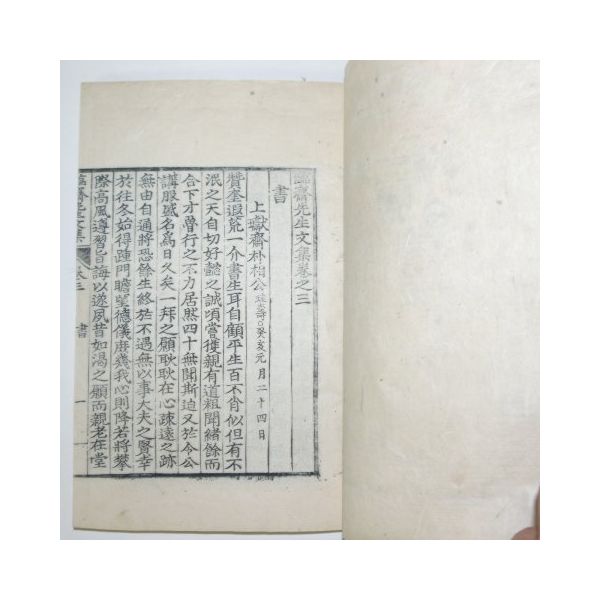 臨齋先生文集卷之三
書
上獻齋朴相公珪壽○癸亥元月二十四日
贊奎遐荒一介書生耳自顧平生百不肖似但有不
泯之天自切好懿之誠頃嘗獲親有道粗聞緒餘而
合下才魯行之不力居然四十無聞斯迫又於令公
講服盛名爲日久矣一拜之願耿耿在心疎遠之跡
無由自通將恐餘生終於不遇無以事大夫之賢幸
於往冬始得踵門瞻望德儀庶幾我心則降若將攀
際高風遵習旨誨以遂夙昔如渴之願而親老在堂
臨齋先生文集 卷三 書 一